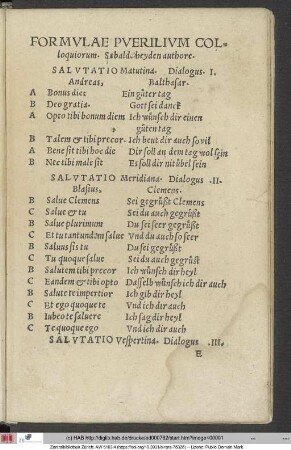 FORMVLAE PVERILIVM COL-
loquiorum. Sebald. heyden authore.
SALVTATIO Matutina. Dialogus. I.
Andreas, Balthasar.
A Bonus dies Ein gůter tag
B Deo gratia. Gott sei danck
A Opto tibi bonum diem Ich wünsch dir einen
gůten tag
B Talem & tibi precor. Ich beut dir auch so vil
A Bene sit tibi hoc die Dir soll an dem tag wol sein
B Nec tibi male sit Es soll dir nit übel sein
SALVTATIO Meridiana. Dialogus .II.
Blasius, Clemens.
B Salue Clemens Sei gegrüßt Clemens
C Salue & tu Sei du auch gegrüßt
B Salue plurimum Du sei seer gegrüßt
C Et tu tantundem salue Vnd du auch so seer
B Saluus sis tu Du sei gegrüßt
C Tu quoque salue Sei du auch gegrüßt
B Salutem tibi precor Ich wünsch dir heyl
C Eandem & tibi opto Dasselb wünsch ich dir auch
B Salute te impertior Ich gib dir heyl
C Et ego quoque te Vnd ich dir auch
B Iubeo te saluere Ich sag dir heyl
C Te quoque ego Vnd ich dir auch
SALVTATIO Vespertina. Dialogus .III.
E
(c) HAB http://diglib.hab.de/drucke/